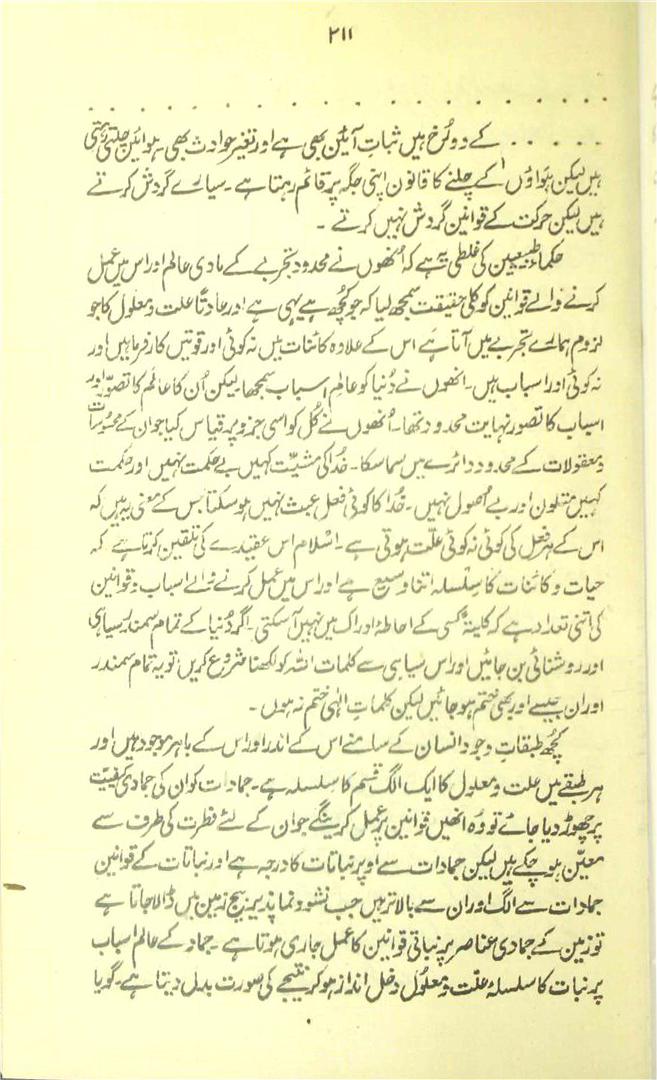 ۲۱۱
. . . . . . . . . . . . . . . . . . . .
. . . . . کے دو رُخ ہیں ثباتِ آئین بھی ہے اور تغیر حوادث بھی۔ ہوائیں چلتی رہتی
ہیں لیکن ہواؤں کے چلنے کا قانون اپنی جگہ پر قائم رہتا ہے۔ سیارے گردش کرتے
ہیں لیکن حرکت کے قوانین گردش نہیں کرتے۔
حکما طبیعیین کی غلطی یہ ہے کہ اُنھوں نے محدود تجربے کے مادی عالم اور اس میں عمل
کرنے والے قوانین کو کلی حقیقت سمجھ لیا کہ جو کچھ ہے یہی ہے اور عادتاً علت و معلول کا جو
لزوم ہمارے تجربے میں آتا ہے اس کے علاوہ کائنات میں نہ کوئی اور قوتیں کارفرما ہیں اور
نہ کوئی اور اسباب ہیں۔ انھوں نے دُنیا کو عالمِ اسباب سمجھا۔ لیکن اُن کا عالم کا تصور اور
اسباب کا تصور نہایت محدود تھا۔ اُنھوں نے کُل کو اسی جزو پر قیاس کیا جو ان کے محسوسات
و معقولات کے محدود دائرے میں سما سکا۔ خدا کی مشیّت کہیں بے حکمت نہیں اور حکمت
کہیں متلون اور بے اُصول نہیں۔ خُدا کا کوئی فعل عبث نہیں ہو سکتا جس کے معنی یہ ہیں کہ
اس کے ہر فعل کی کوئی نہ کوئی علّت ہوتی ہے۔ اسلام اس عقیدے کی تلقین کرتا ہے کہ
حیات و کائنات کا سِلسلہ اتنا وسیع ہے اور اس میں عمل کرنے والے اسباب و قوانین
کی اتنی تعداد ہے کہ کلیتہً کسی کے احاطۂ ادراک میں نہیں آ سکتی۔ اگر دُنیا کے تمام سمندر سیاہی
اور روشنائی بن جائیں اور اس سیاہی سے کلمات اللہ کو لکھنا شروع کریں تو یہ تمام سمندر
اور ان جیسے اور بھی ختم ہو جائیں لیکن کلماتِ الٰہی ختم نہ ہوں۔
کچھ طبقاتِ وجود انسان کے سامنے اس کے اندر اور اس کے باہر موجود ہیں اور
ہر طبقے میں علت و معلول کا ایک الگ قسم کا سلسلہ ہے۔ جمادات کو ان کی جمادی کیفیّت
پر چھوڑ دیا جائے تو وُہ انھیں قوانین پر عمل کرینگے جو ان کے لئے فطرت کی طرف سے
معیّن ہو چکے ہیں لیکن جمادات سے اوپر نباتات کا درجہ ہے اور نباتات کے قوانین
جمادات سے الگ اور ان سے بالاتر ہیں جب نشوونما پذیر بیج زمین میں ڈالا جاتا ہے
تو زمین کے جمادی عناصر پر نباتی قوانین کا عمل جاری ہوتا ہے۔ جماد کے عالم اسباب
پر نبات کا سلسلۂ علّت و معلُول دخل انداز ہو کر نتیجے کی صورت بدل دیتا ہے۔ گویا